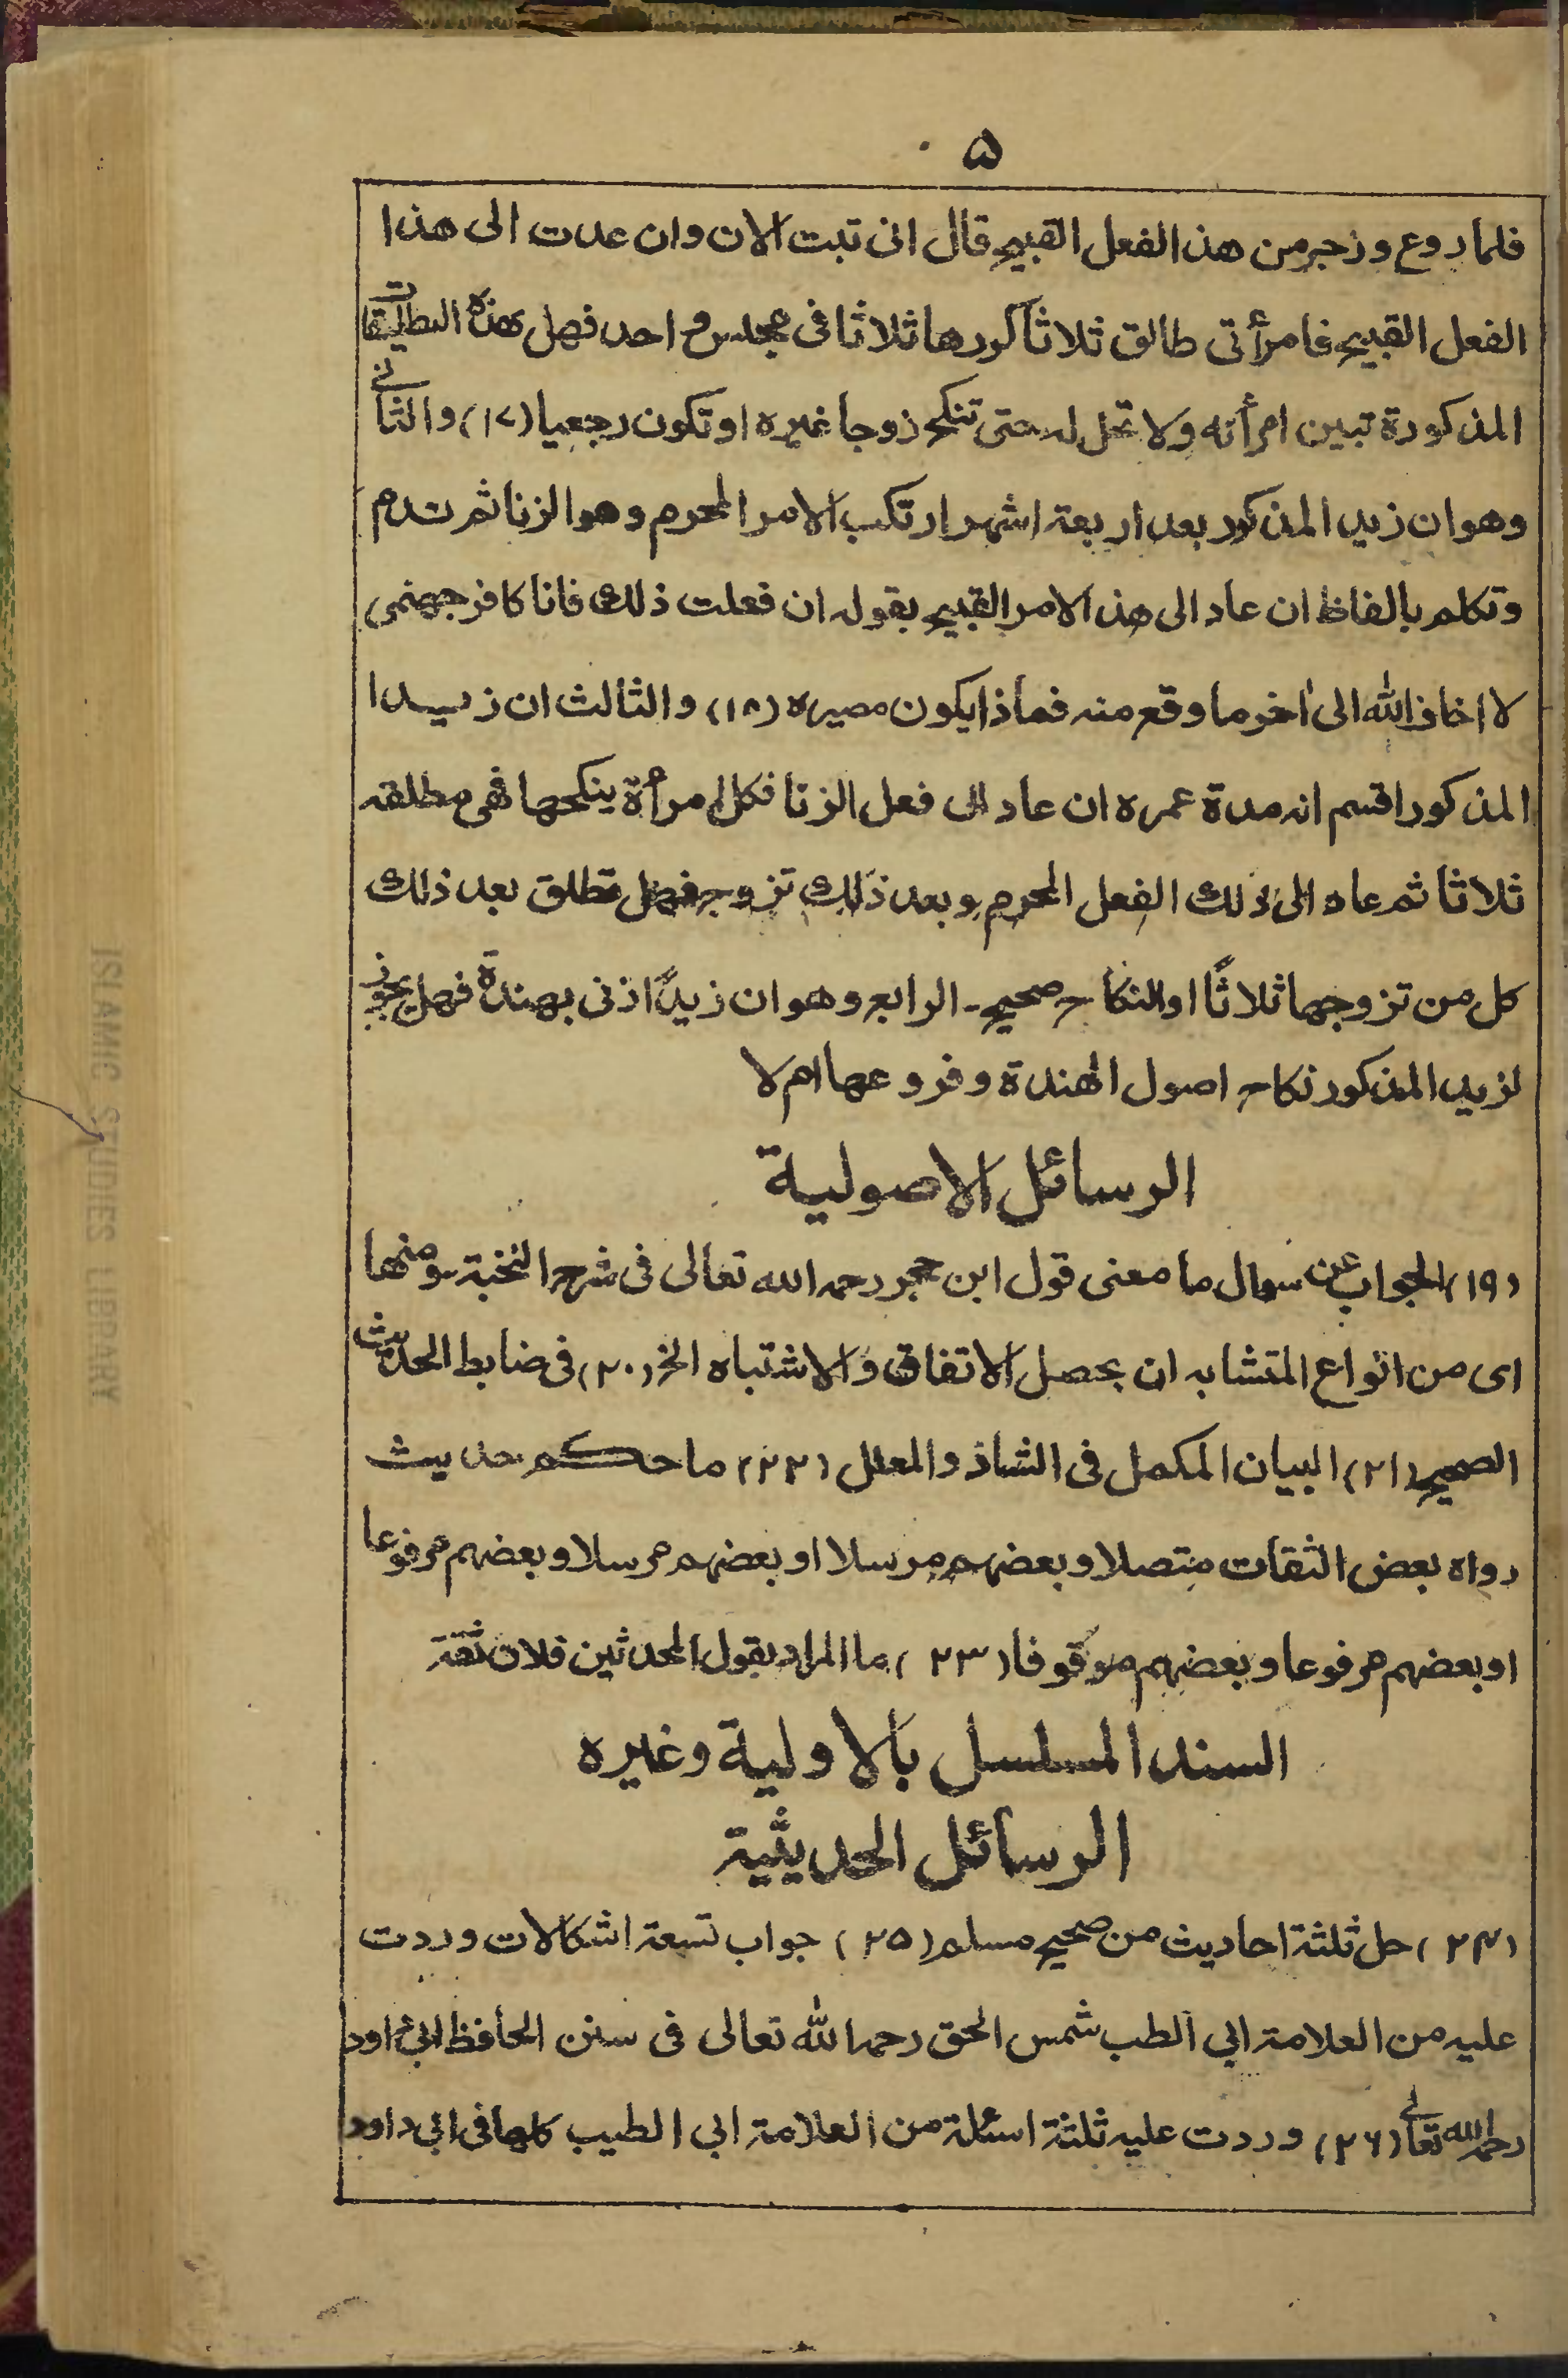 ۵
فلما روع وزجر من هذا الفعل القبيح قال انى تبت الان وان عدت الى هذا
الفعل القبيح فامرأتى طالق ثلاثا كررها ثلاثا فى مجلس واحد فهل بهذه التطليقات
المذكورة تبين امرأته ولا تحل له حتى تنكح زوجا غيره او تكون رجعيا (١٧) والثانى
وهو ان زيد المذكور بعد اربعة اشهر ارتكب الامر المحرم وهو الزنا ثم ندم
وتكلم بالفاظ ان عاد الى هذا الامر القبيح بقوله ان فعلت ذلك فانا كافر جهنمى
لا اخاف الله الى اخر ما وقع منه فماذا يكون مصيره (١٨) والثالث ان زيدا
المذكور اقسم انه مدة عمره ان عاد الى فعل الزنا فكل امرأة ينكحها فهى مطلقه
ثلاثا ثم عاد الى ذلك الفعل المحرم وبعد ذلك تزوج فهل تطلق بعد ذلك
كل من تزوجها ثلاثًا او النكاح صحيح۔ الرابع وهو ان زيدًا زنى بهندة فهل يجوز
لزيد المذكور نكاح اصول الهندة وفروعها ام لا
الرسائل الاصولية
(١٩) الجواب عن سوال ما معنى قول ابن حجر رحمه الله تعالى فى شرح النخبة ومنها
اى من انواع المتشابه ان يحصل الاتفاق والاشتباه الخ (٢٠) فى ضابط الحديث
الصحيح (٢١) البيان المكمل فى الشاذ والمعلل (٢٢) ما حكم حديث
رواه بعض الثقات متصلا وبعضهم مرسلا او بعضهم مرسلا وبعضهم مرفوعا
او بعضهم مرفوعا وبعضهم موقوفا (٢٣) ما المراد بقول المحدثين فلان ثقة
السند المسلسل بالاولية وغيره
الرسائل الحديثية
(٢٤) حل ثلثة احاديث من صحيح مسلم (٢٥) جواب تسعة اشكالات وردت
عليه من العلامة ابي الطب شمس الحق رحمه الله تعالى فى سنن الحافظ ابى داود
رحمه الله تعالى (٢٦) وردت عليه ثلثة اسئلة من العلامة ابي الطيب كلها فى ابى داود
ISLAMIC STUDIES LIBRARY